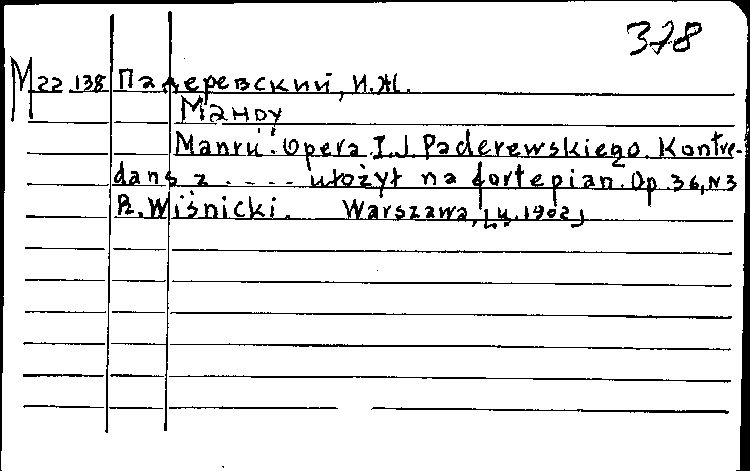 378
M22.138 Падеревский, И.Ж.
Манру
Manru. Opera I.J. Paderewskiego. Kontre-
dans z . . . . . ułożył na fortepian. Op. 36, N3
R. Wiśnicki. Warszawa, [ц. 1902]